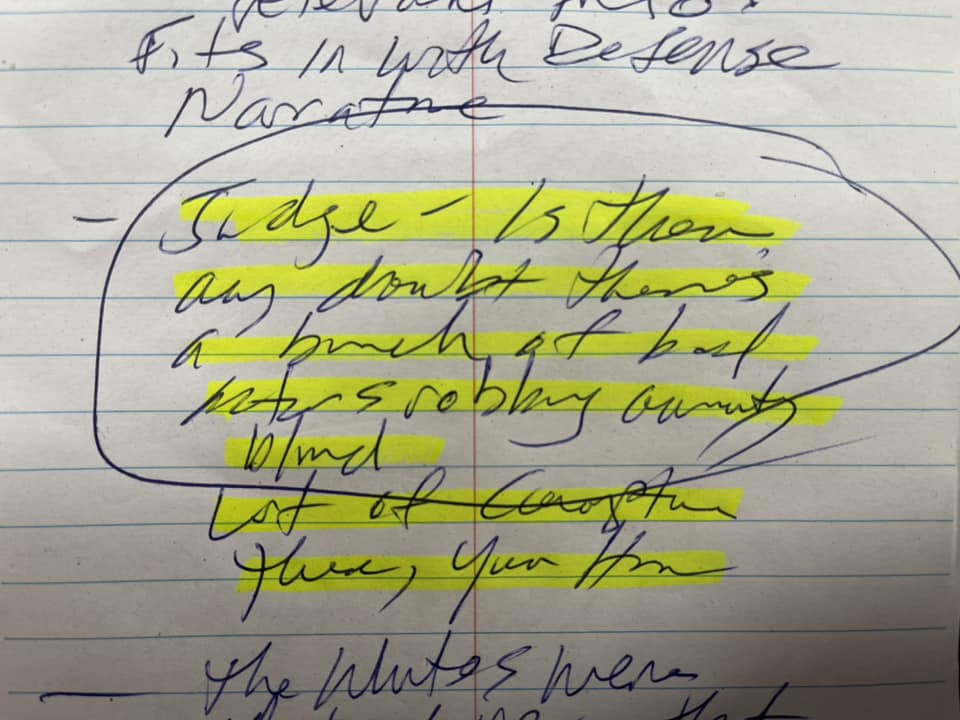 relevant info.
Fits in with Defense
Narrative
- Judge - Is there
any doubt there's
a bunch of bad
actors robbing county
blind
Lot of Corruption
there, Your Honor
- The Whites were
that